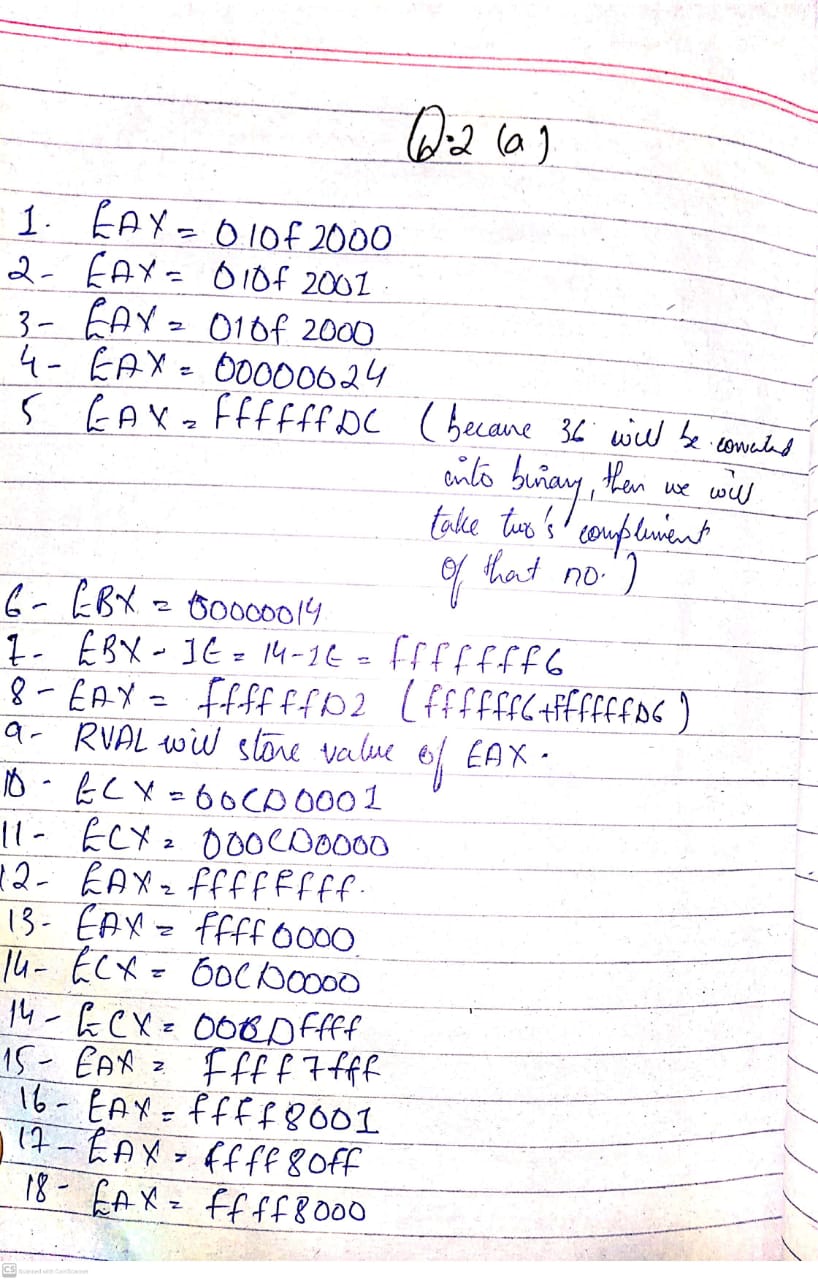 Q.2 (a)
1. EAX = 010f2000
2- EAX = 010f 2001
3- EAX = 010f 2000
4- EAX = 00000024
5 EAX = ffffffDC (because 36 will be converted
into binary, then we will
take two's compliment
of that no.)
6- EBX = 00000014
7- EBX - 1E = 14-1E = fffffff6
8- EAX = ffffffD2 (ffffff6+ffffffD6)
9- RVAL will store value of EAX.
10- ECX = 00CD0001
11- ECX = 000CD0000
12- EAX = ffffffff.
13- EAX = ffff0000
14- ECX = 00CD0000
14- ECX = 00CDffff
15- EAX = ffff7fff
16- EAX = ffff8001
17- EAX = ffff80ff
18- EAX = ffff8000
CS Scanned with CamScanner